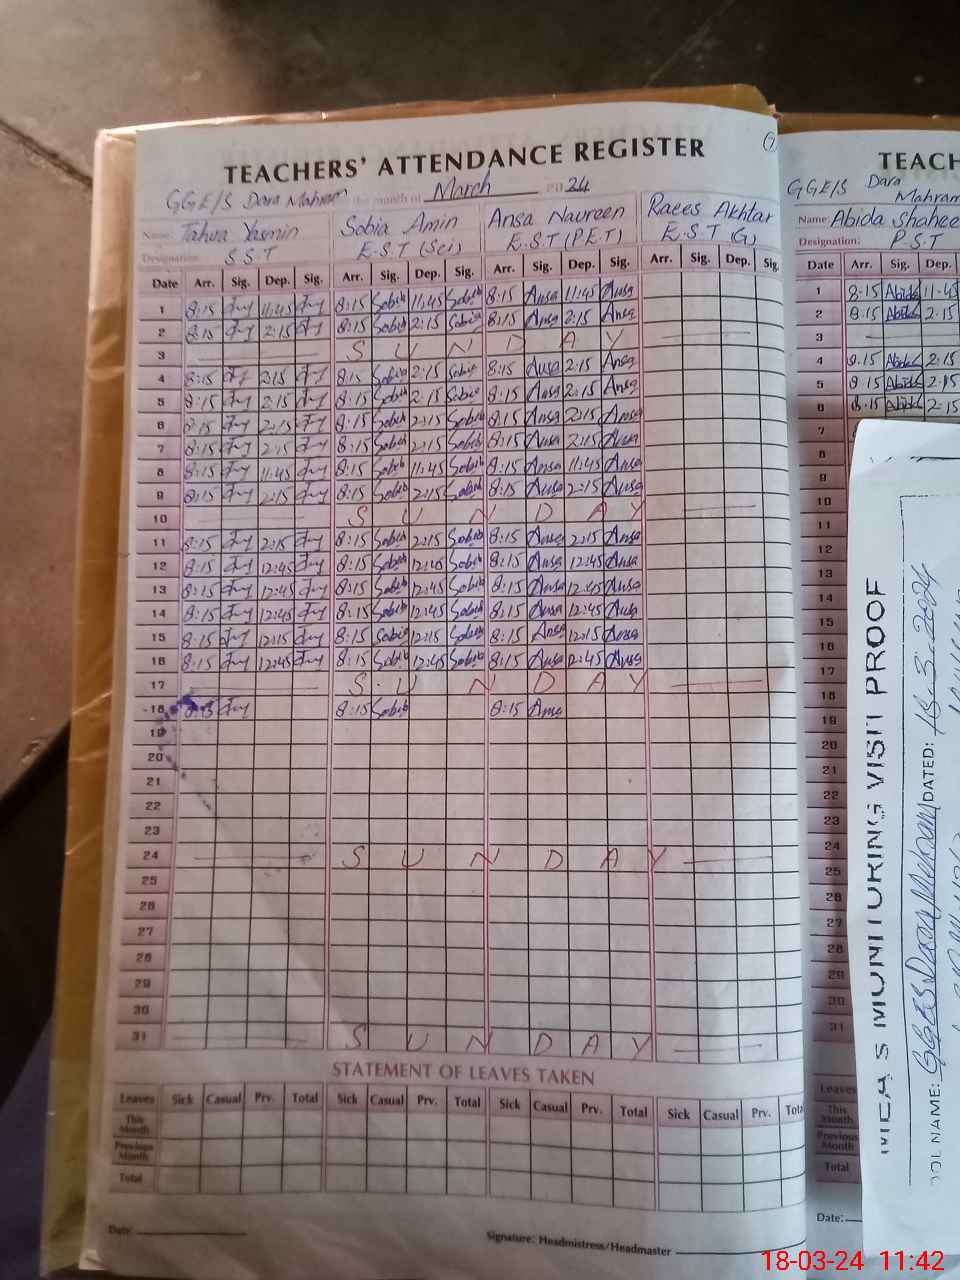 TEACHERS' ATTENDANCE REGISTER
7
GGE/S Dara Mahram the month of March 2024
Name: Tahira Yasmin Sobia Amin Ansa Naureen Raees Akhtar
Designation: S.S.T E.S.T (Sci) E.S.T (P.E.T) E.S.T (G)
Date Arr. Sig. Dep. Sig. Arr. Sig. Dep. Sig. Arr. Sig. Dep. Sig. Arr. Sig. Dep. Sig.
1 8:15 11:45 8:15 Sobia 11:45 Sobia 8:15 Ansa 11:45 Ansa
2 8:15 2:15 8:15 Sobia 2:15 Sobia 8:15 Ansa 2:15 Ansa
3 S U N D A Y
4 8:15 2:15 8:15 Sobia 2:15 Sobia 8:15 Ansa 2:15 Ansa
5 8:15 2:15 8:15 Sobia 2:15 Sobia 8:15 Ansa 2:15 Ansa
6 8:15 2:15 8:15 Sobia 2:15 Sobia 8:15 Ansa 2:15 Ansa
7 8:15 2:15 8:15 Sobia 2:15 Sobia 8:15 Ansa 2:15 Ansa
8 8:15 11:45 8:15 Sobia 11:45 Sobia 8:15 Ansa 11:45 Ansa
9 8:15 2:15 8:15 Sobia 2:15 Sobia 8:15 Ansa 2:15 Ansa
10 S U N D A Y
11 8:15 2:15 8:15 Sobia 2:15 Sobia 8:15 Ansa 2:15 Ansa
12 8:15 12:45 8:15 Sobia 12:45 Sobia 8:15 Ansa 12:45 Ansa
13 8:15 12:45 8:15 Sobia 12:45 Sobia 8:15 Ansa 12:45 Ansa
14 8:15 12:45 8:15 Sobia 12:45 Sobia 8:15 Ansa 12:45 Ansa
15 8:15 12:15 8:15 Sobia 12:15 Sobia 8:15 Ansa 12:15 Ansa
16 8:15 12:45 8:15 Sobia 12:45 Sobia 8:15 Ansa 12:45 Ansa
17 S U N D A Y
18 8:15 8:15 Sobia 8:15 Ansa
19
20
21
22
23
24 S U N D A Y
25
26
27
28
29
30
31 S U N D A Y
STATEMENT OF LEAVES TAKEN
Leaves Sick Casual Prv. Total Sick Casual Prv. Total Sick Casual Prv. Total Sick Casual Prv. Total
This Month
Previous Month
Total
Date:
Signature: Headmistress/Headmaster
TEACH
GGE/S Dara Mahram
Name: Abida Shahee
Designation: P.S.T
Date Arr. Sig. Dep.
1 8:15 Abida 11:45
2 8:15 Abida 2:15
3
4 8:15 Abida 2:15
5 8:15 Abida 2:15
6 8:15 Abida 2:15
7
8
9
10
11
12
13
14
15
16
17
18
19
20
21
22
23
24
25
26
27
28
29
30
31
Leaves
This Month
Previous Month
Total
Date:
MEA'S MONITORING VISIT PROOF
OOL NAME: GGES Dara Mehram DATED: 18.3.2024
18-03-24 11:42